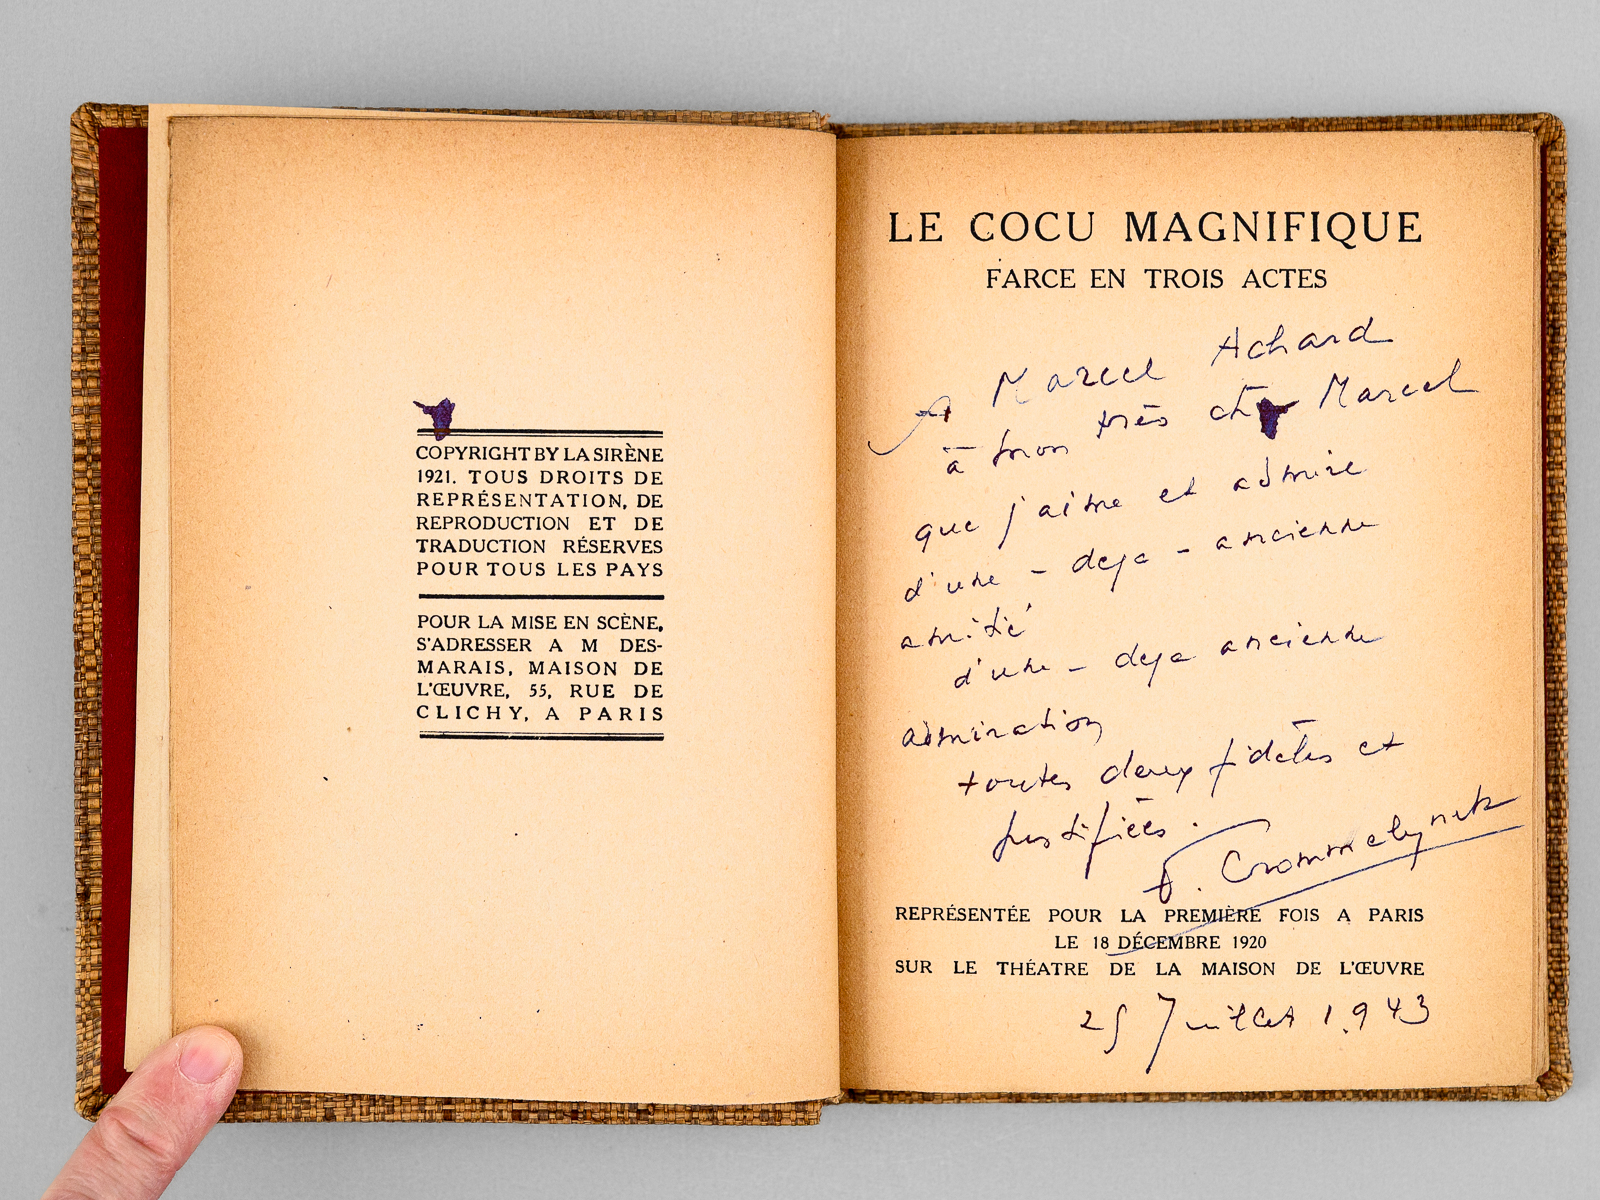 COPYRIGHT BY LA SIRÈNE
1921. TOUS DROITS DE
REPRÉSENTATION, DE
REPRODUCTION ET DE
TRADUCTION RÉSERVES
POUR TOUS LES PAYS
POUR LA MISE EN SCÈNE,
S'ADRESSER A M DES-
MARAIS, MAISON DE
L'ŒUVRE, 55, RUE DE
CLICHY, A PARIS
LE COCU MAGNIFIQUE
FARCE EN TROIS ACTES
A Marcel Achard
à mon très cher Marcel
que j'aime et admire
d'une - deja - ancienne
amitié
d'une - deja ancienne
admiration
toutes deux fidèles et
justifiées.
F. Crommelynck
REPRÉSENTÉE POUR LA PREMIÈRE FOIS A PARIS
LE 18 DÉCEMBRE 1920
SUR LE THÉATRE DE LA MAISON DE L'ŒUVRE
25 Juillet 1.943